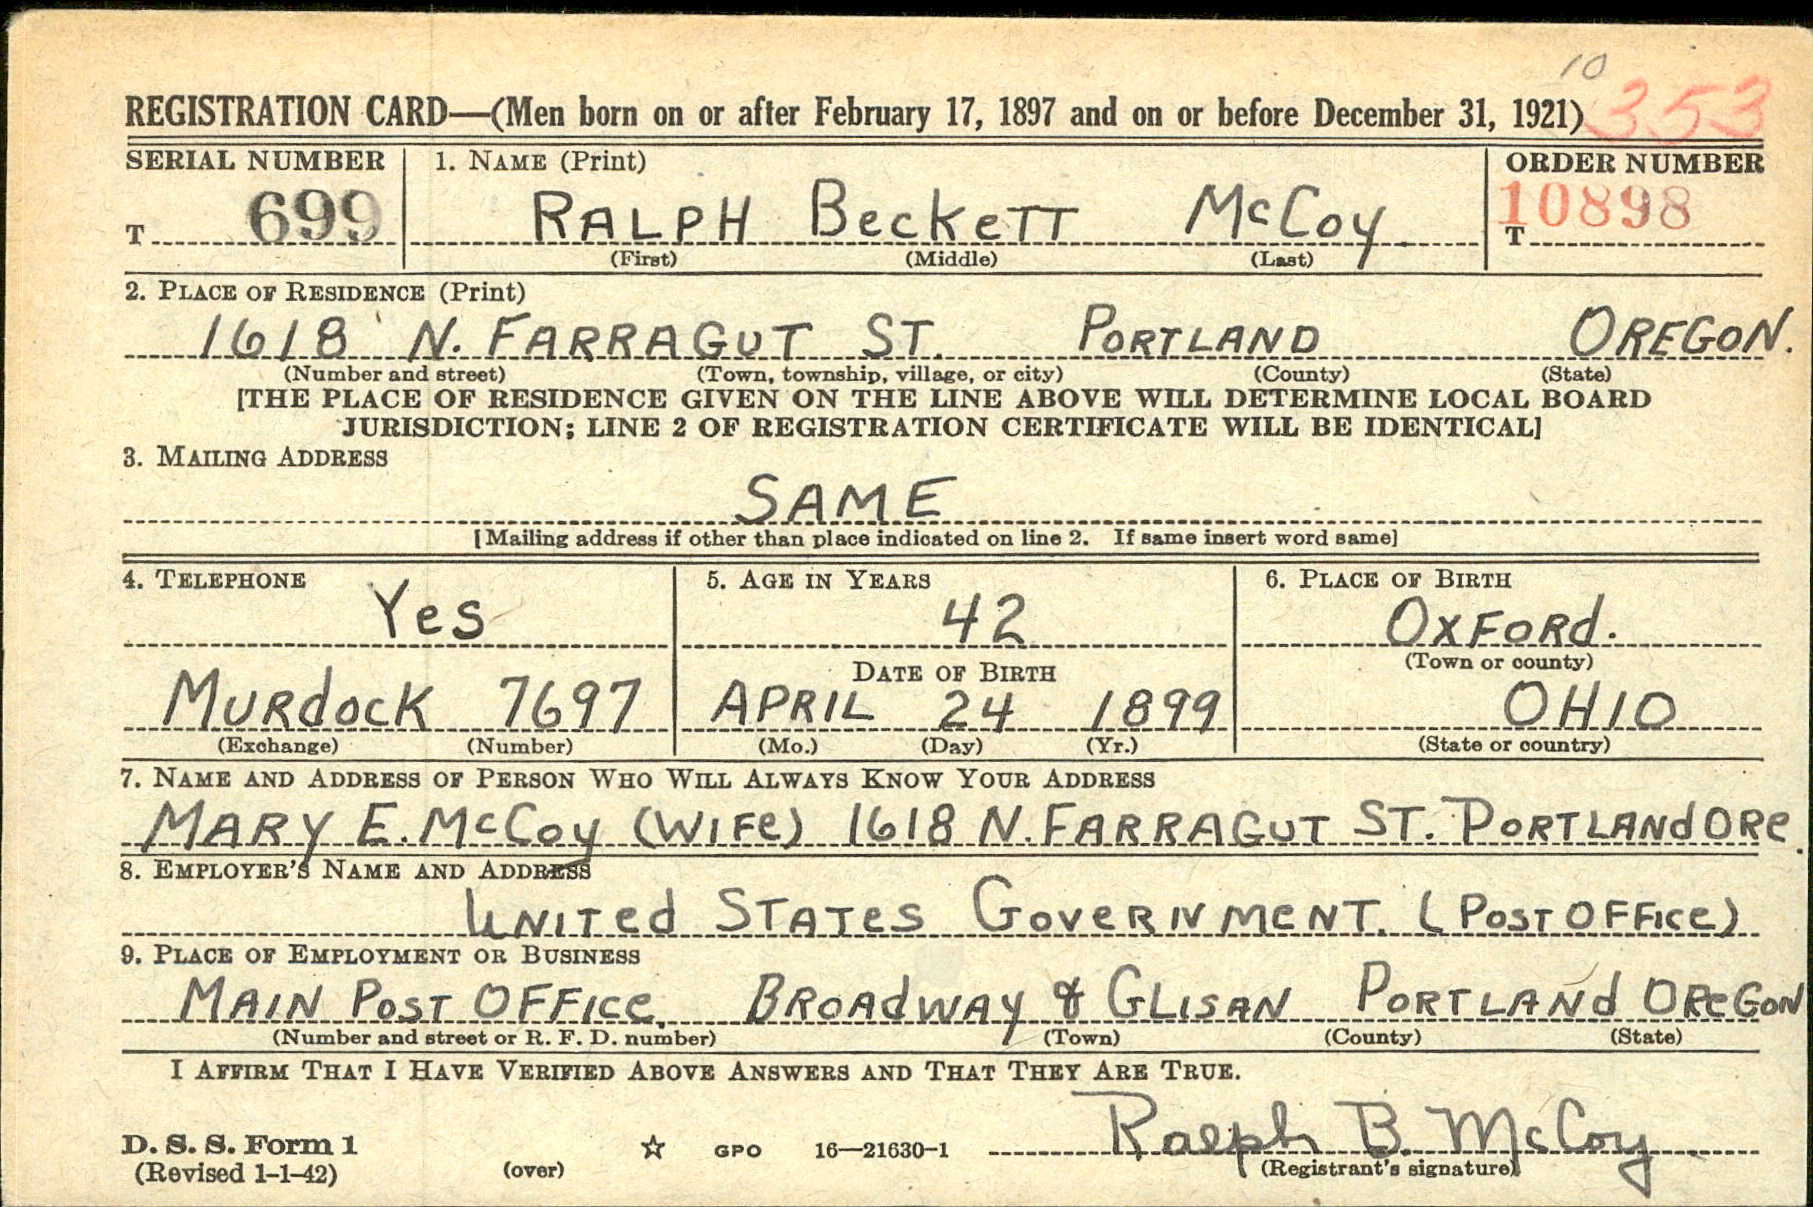 10
REGISTRATION CARD—(Men born on or after February 17, 1897 and on or before December 31, 1921) 353
SERIAL NUMBER 1. NAME (Print) ORDER NUMBER
T 699 RALPH BeckeTT McCoy T 10898
(First) (Middle) (Last)
2. PLACE OF RESIDENCE (Print)
1618 N. FARRAGUT ST. PORTLAND OREGON.
(Number and street) (Town, township, village, or city) (County) (State)
[THE PLACE OF RESIDENCE GIVEN ON THE LINE ABOVE WILL DETERMINE LOCAL BOARD
JURISDICTION; LINE 2 OF REGISTRATION CERTIFICATE WILL BE IDENTICAL]
3. MAILING ADDRESS
SAME
[Mailing address if other than place indicated on line 2. If same insert word same]
4. TELEPHONE 5. AGE IN YEARS 6. PLACE OF BIRTH
Yes 42 OXFORd.
DATE OF BIRTH (Town or county)
MURdocK 7697 APRIL 24 1899 OHIO
(Exchange) (Number) (Mo.) (Day) (Yr.) (State or country)
7. NAME AND ADDRESS OF PERSON WHO WILL ALWAYS KNOW YOUR ADDRESS
MARY E. McCoy (WIFe) 1618 N. FARRAGUT ST. PORTLANd ORe.
8. EMPLOYER'S NAME AND ADDRESS
UNITed STATes GoveRNmeNT. (POST OFFIce)
9. PLACE OF EMPLOYMENT OR BUSINESS
MAIN POST OFFIce. BROAdWAY & GLISAN PORTLANd OReGON
(Number and street or R. F. D. number) (Town) (County) (State)
I AFFIRM THAT I HAVE VERIFIED ABOVE ANSWERS AND THAT THEY ARE TRUE.
Ralph B. McCoy
D. S. S. Form 1 ☆ GPO 16—21630-1
(Revised 1-1-42) (over) (Registrant's signature)